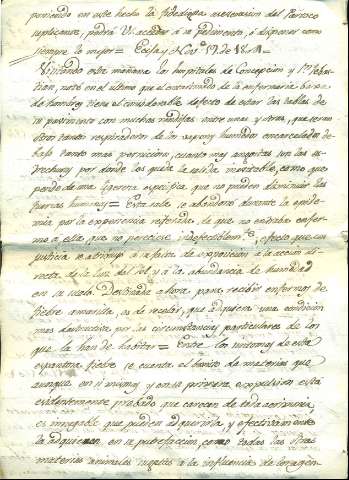 poniendo en este hecho la fidedigna aseveracion del Parroco
suplicante, podrá V. acceder á su pedimento, ó disponer como
siempre lo mejor = Ecija y Nov.e 17. de 18
Visitando esta mañana los hospitales de Concepcion y S.n Sebas-
tian, noté en el ultimo que el entarimado de la enfermeria baxa
de hombres tiene el considerable defecto de estar las tablas de
su pavimento con muchas rendijas entre unas y otras, que seran
otros tantos respiraderos de los vapores humedos encarcelados de-
bajo tanto mas perniciosos, cuanto mas angostas son las
por donde les queda la salida
perdida de una ligereza especifica que no pueden disminuir las
fuerzas humanas = Esta sala se abandonó durante la epide-
mia por la experiencia reiterada, de que no entraba enfer-
mo á ella que no pereciese indefectiblem.te, efecto que con
justicia se atribuyó á la falta de exposicion á la accion di-
recta de la luz del Sol, y á la abundancia de humedad
en su suelo. Destinada ahora para recibir enfermos de
fiebre amarilla, es de recelar, que adquiera una condicion
mas destructiva por las circunstancias particulares de los
que la han de habitar = Entre los sintomas de esta
espantosa fiebre se cuenta el vomito de materias que
aunque en si mismas y en su primera expulsion está
evidentemente probado que carecen de toda acrimonia,
es innegable que pueden adquirirla y efectivamente
la adquieren en su putrefaccion, como todas las otras
materias animales sugetas á la influencia de los agen-